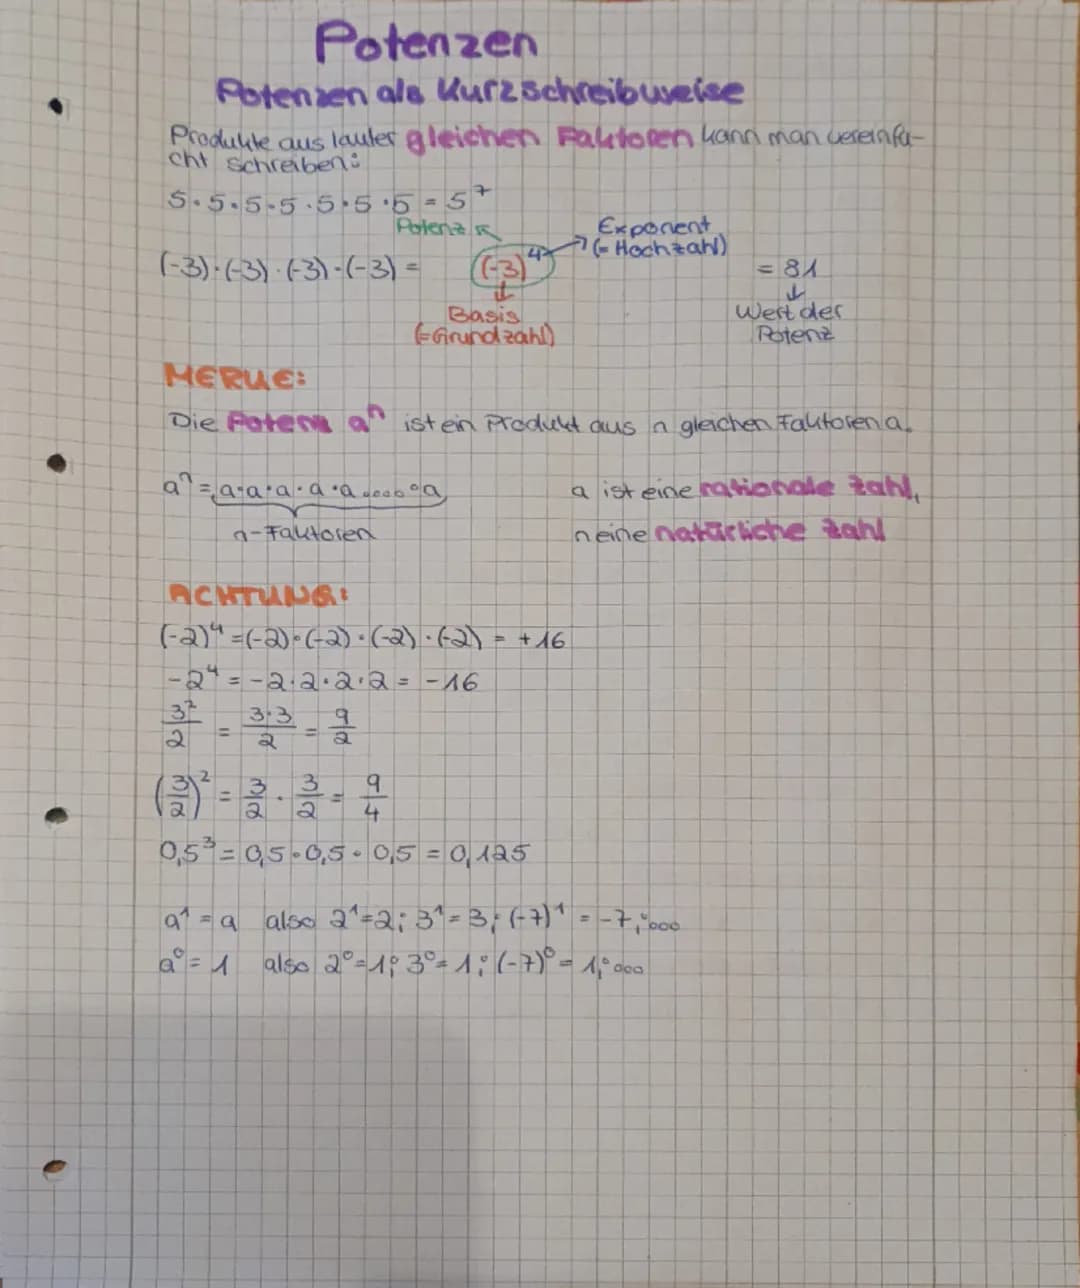 Potenzen
Potenzen als Kurzschreibweise
Produkte aus lauter gleichen Faktoren kann man vereinfa-
cht schreiben:
5·5·5·5·5·5·5 = 5⁷
Potenz
Exponent
(=Hochzahl)
(-3)·(-3)·(-3)·(-3) = (-3)⁴ = 81
Basis
(=Grundzahl)
Wert der
Potenz
MERKE:
Die Potenz aⁿ ist ein Produkt aus n gleichen Faktoren a.
aⁿ = a·a·a·a·a.....·a
n-Faktoren
a ist eine rationale Zahl,
n eine natürliche Zahl
ACHTUNG:
(-2)⁴ = (-2)·(-2)·(-2)·(-2) = +16
-2⁴ = -2·2·2·2 = -16
3²/2 = 3·3/2 = 9/2
(3/2)² = 3/2 · 3/2 = 9/4
0,5³ = 0,5·0,5·0,5 = 0,125
a¹ = a also 2¹=2; 3¹=3; (-7)¹ = -7; ...
a⁰ = 1 also 2⁰=1; 3⁰=1; (-7)⁰ = 1; ...